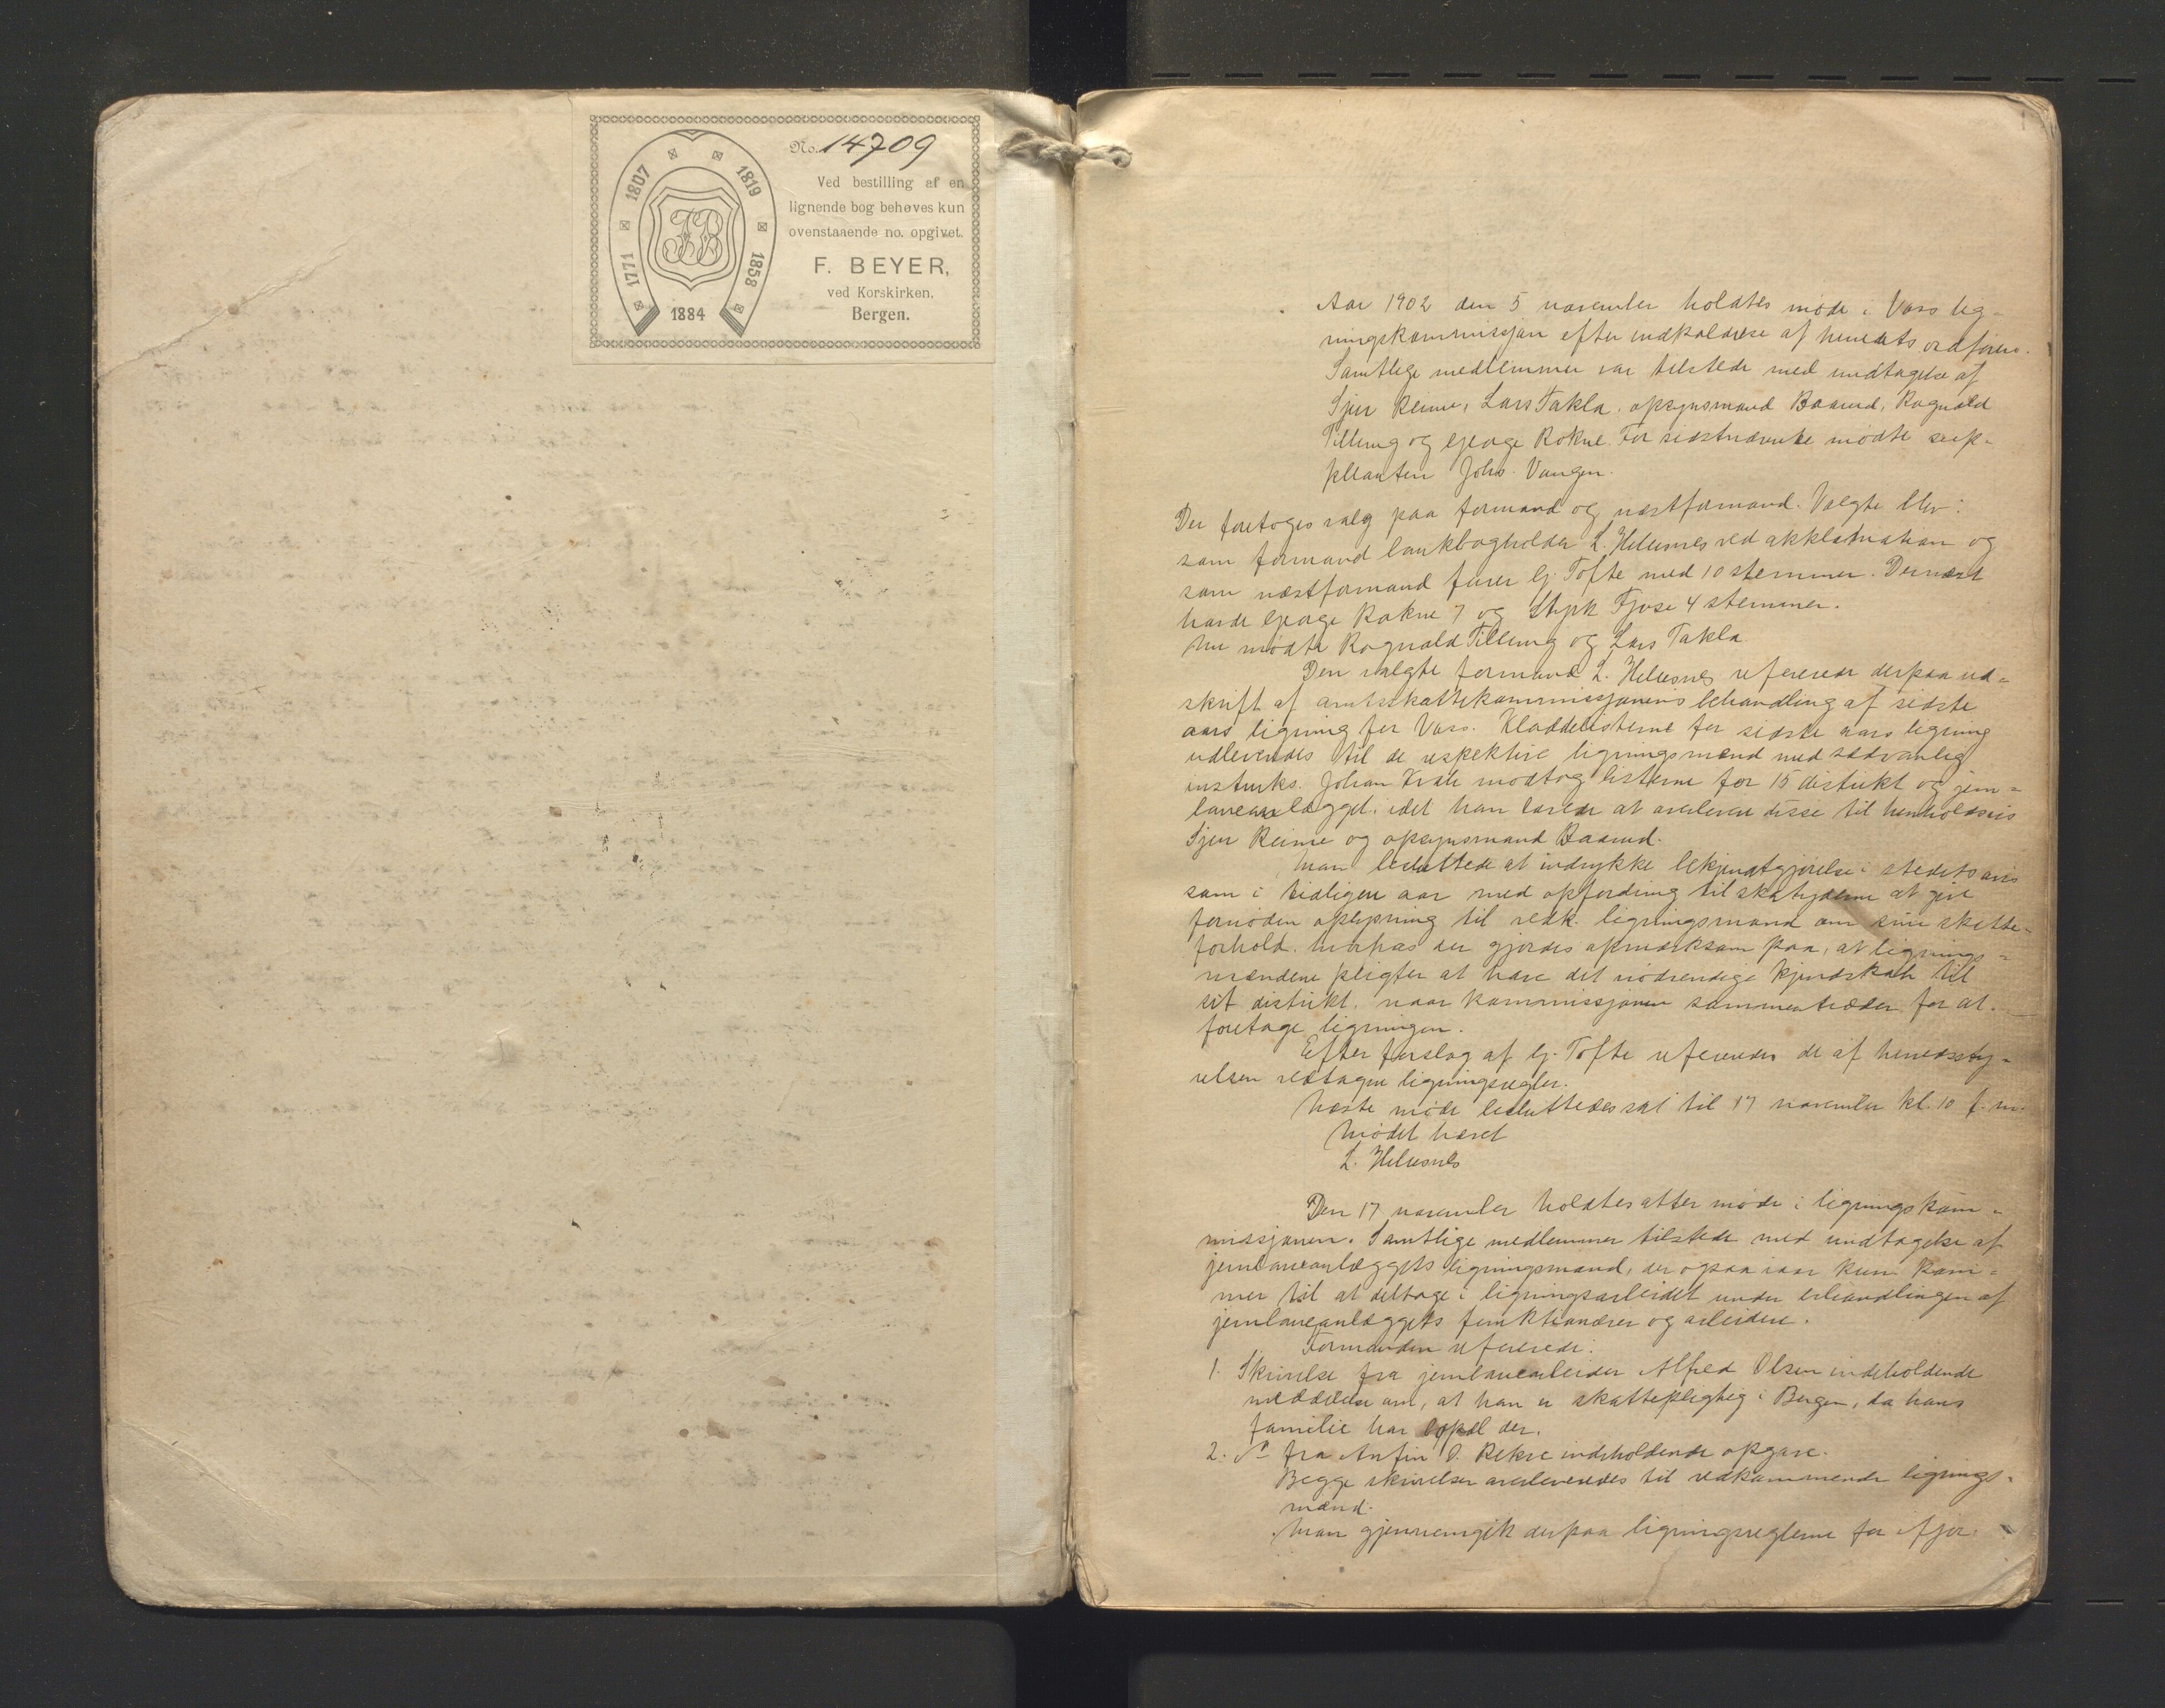 No. 14709
Ved bestilling af en
lignende bog behøves kun
ovenstaaende no. opgivet.
F. BEYER,
ved Korskirken,
Bergen.
1771 1807 1819 1858
1884
FB
Aar 1902 den 5 november holdtes møde i Voss lig-
ningskommissjon efter indkaldelse af herredets ordfører.
Samtlige medlemmer var tilstede med undtagelse af
Sjur Reime, Lars Takla, opsynsmand Baarud, Rognald
Tillung og George Rokne. For sidstnævnte mødte sup-
pleanten Johs. Vangen.
Der foretoges valg paa formand og næstformand. Valgte blev:
som formand bankbogholder L. Helesnes ved akklamation og
som næstformand furer Gj. Tofte med 10 stemmer. Dernæst
havde George Rokne 7 og Styrk Fjose 4 stemmer.
Nu mødte Rognald Tillung og Lars Takla
Den valgte formand L. Helesnes refererede derpaa ud-
skrift af amtsskattekommissjonens behandling af sidste
aars ligning for Voss. Kladdelisterne for sidste aars ligning
udleveredes til de respektive ligningsmænd med sædvanlig
instruks. Johan modtog listerne for 15 distrikt og jern-
baneanlægget, idet han lovede at aflevere disse til henholdsvis
Sjur Reime og opsynsmand Baarud.
Man besluttede at indrykke bekjendtgjørelse i stedets avis
som i tidligere aar med opfordring til skatyderne at give
fornøden oplysning til vedk. ligningsmand om sine skatte-
forhold. hvorhos der gjordes opmærksom paa, at lignings-
mændene pligter at have det nødvendige kjendskab til
sit distrikt, naar kommissjonen sammentræder for at
foretage ligningen.
Efter forslag af Gj. Tofte refereredes de af herredssty-
relsen vedtagne ligningsregler.
Næste møde besluttedes sat til 17 november kl. 10 f. m.
Mødet hævet
L. Helesnes
Den 17 november holdtes atter møde i ligningskom-
missjonen. Samtlige medlemmer tilstede med undtagelse af
jernbaneanlæggets ligningsmand, der ogsaa iaar kun kom-
mer til at deltage i ligningsarbeidet under behandlingen af
jernbaneanlæggets funktionærer og arbeidere.
Formanden refererede:
1. Skrivelse fra jernbanearbeider Alfred Olsen indeholdende
meddelelse om, at han er skattepligtig i Bergen, da hans
familie har bopæl der.
2. Do fra Anfin O. Rekve indeholdende opgave.
Begge skrivelser afleveredes til vedkommende lignings-
mænd.
Man gjennemgik derpaa ligningsreglerne for ifjor